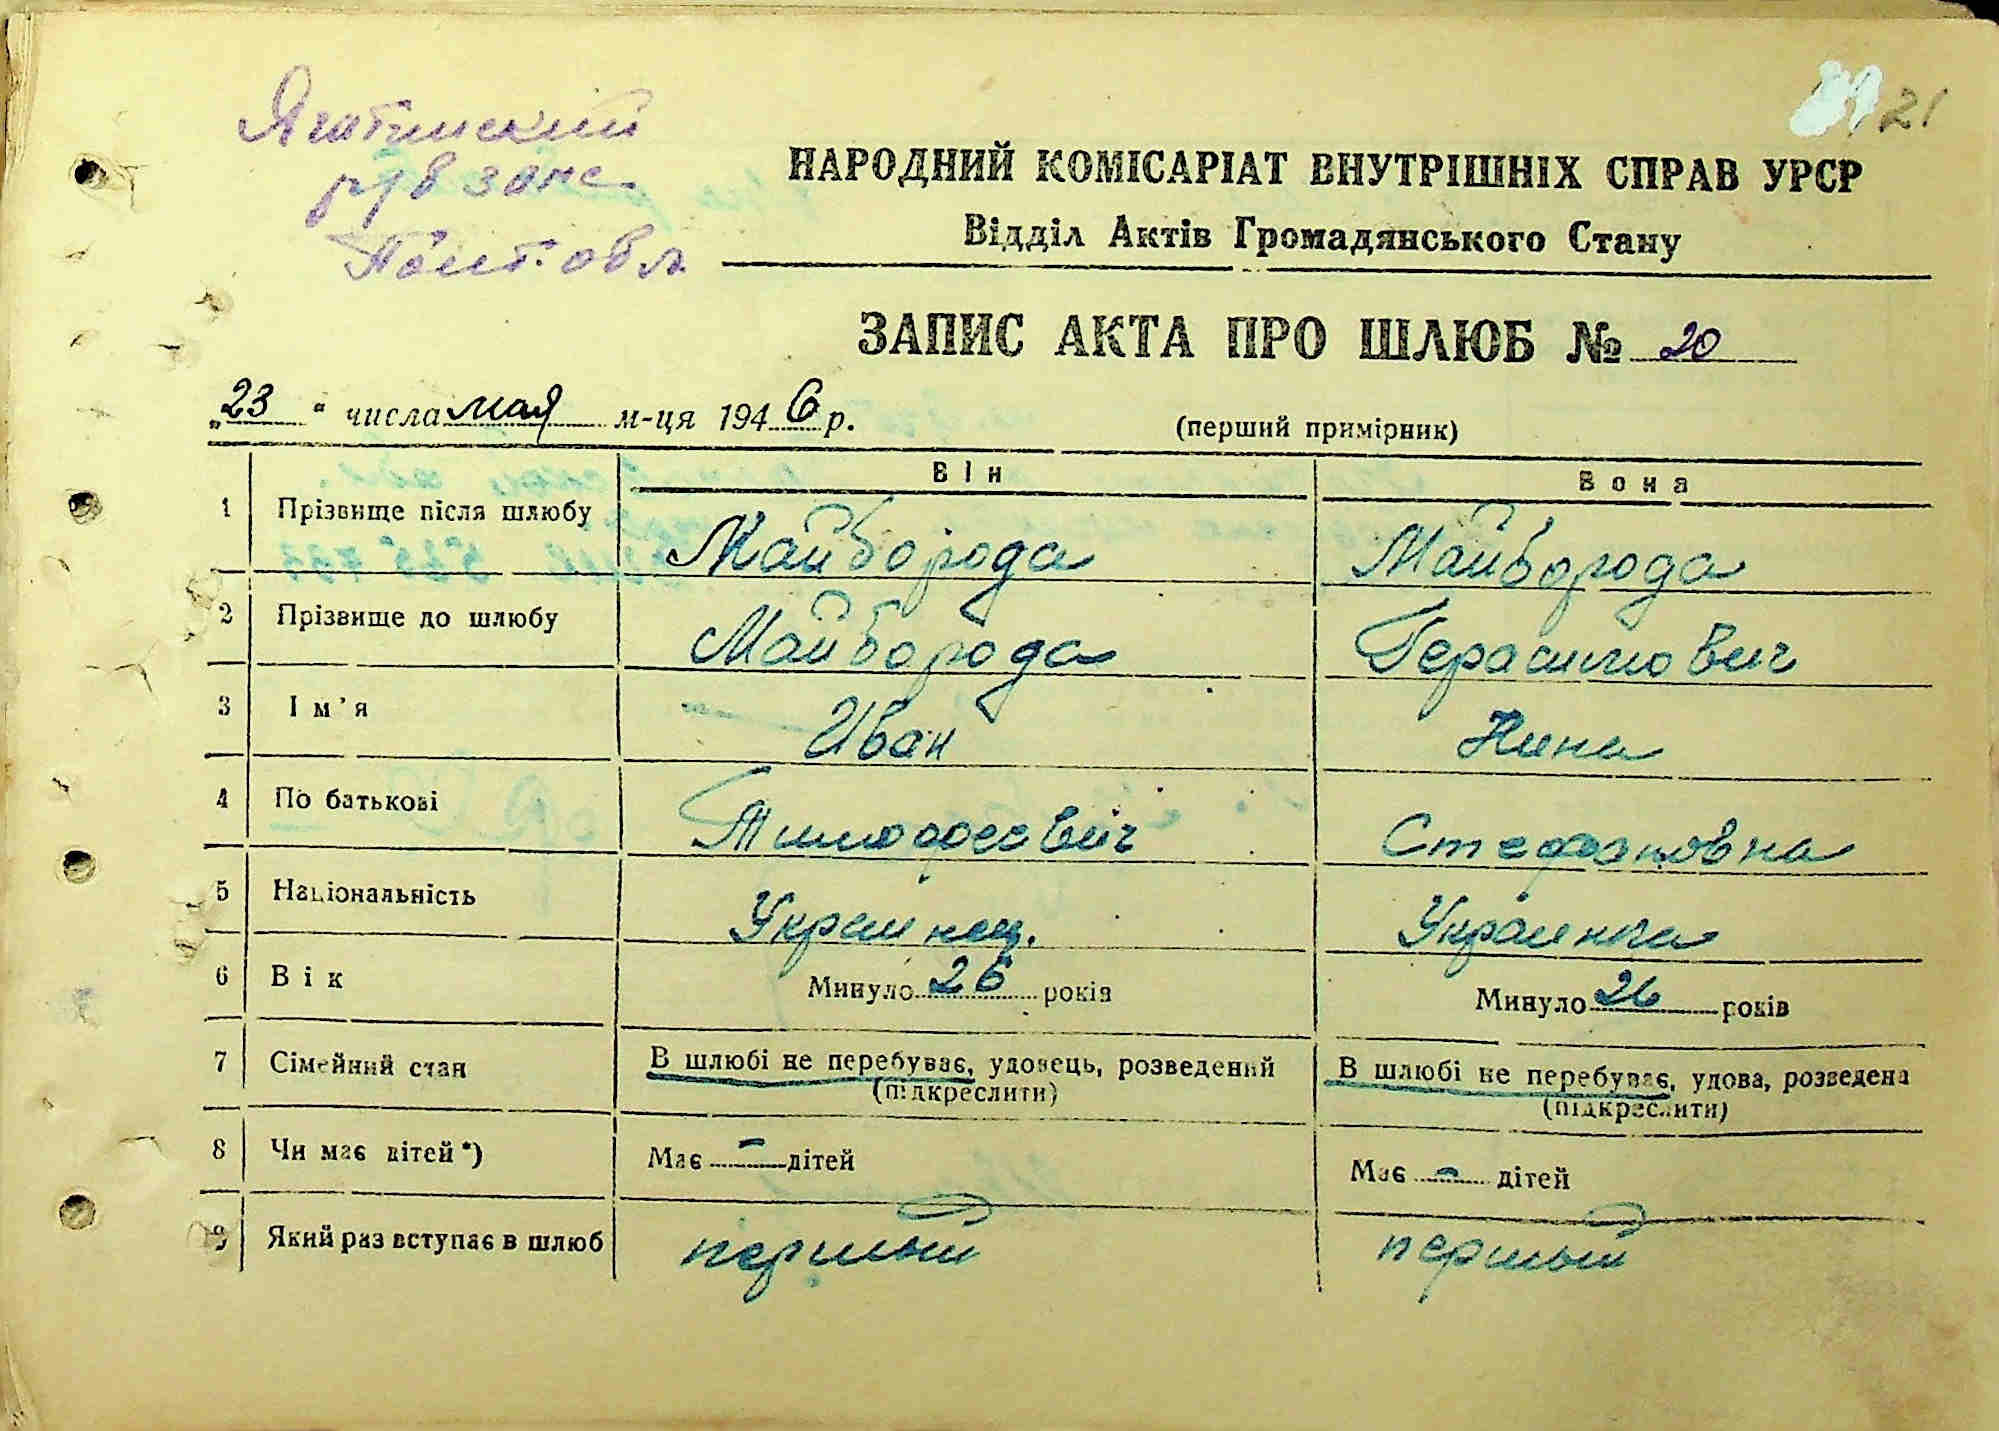 21
Яготинский
р/б загс
Полт. обл.
НАРОДНИЙ КОМІСАРІАТ ВНУТРІШНІХ СПРАВ УРСР
Відділ Актів Громадянського Стану
ЗАПИС АКТА ПРО ШЛЮБ № 20
„23“ числа мая м-ця 1946 р.
(перший примірник)
Він Вона
1 Прізвище після шлюбу Майборода Майборода
2 Прізвище до шлюбу Майборода Герасимович
3 Ім'я Иван Нина
4 По батькові Тимофеевич Стефановна
5 Національність Украинец. Украинка
6 Вік Минуло 26 років Минуло 26 років
7 Сімейний стан В шлюбі не перебуває, удовець, розведений В шлюбі не перебуває, удова, розведена
(підкреслити) (підкреслити)
8 Чи має дітей*) Має - дітей Має - дітей
9 Який раз вступає в шлюб первый первый